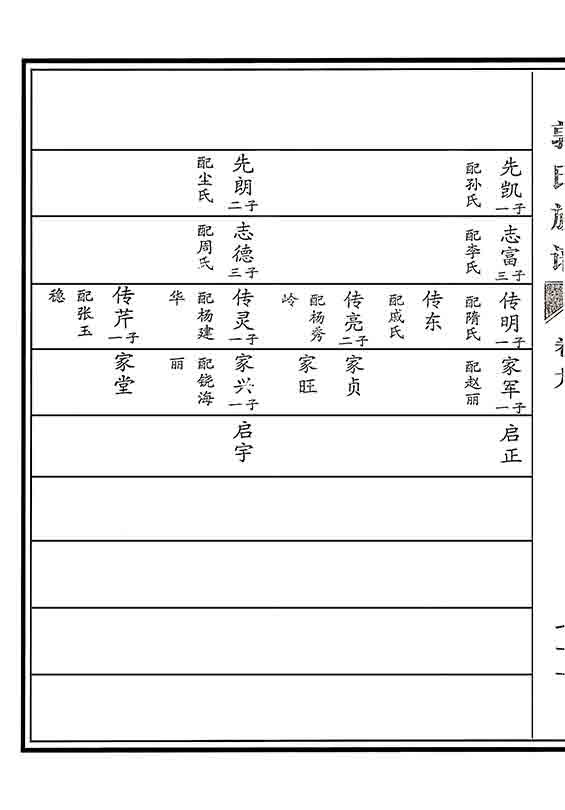 先凯 一子 配孙氏
先朗 二子 配尘氏
志富 三子 配李氏
志德 三子 配周氏
传明 一子 配隋氏
传东 配戚氏
传亮 二子 配杨秀岭
传灵 一子 配杨建华
传芹 一子 配张玉稳
家军 一子 配赵丽
家贞
家旺
家兴 一子 配饶海丽
家堂
启正
启宇